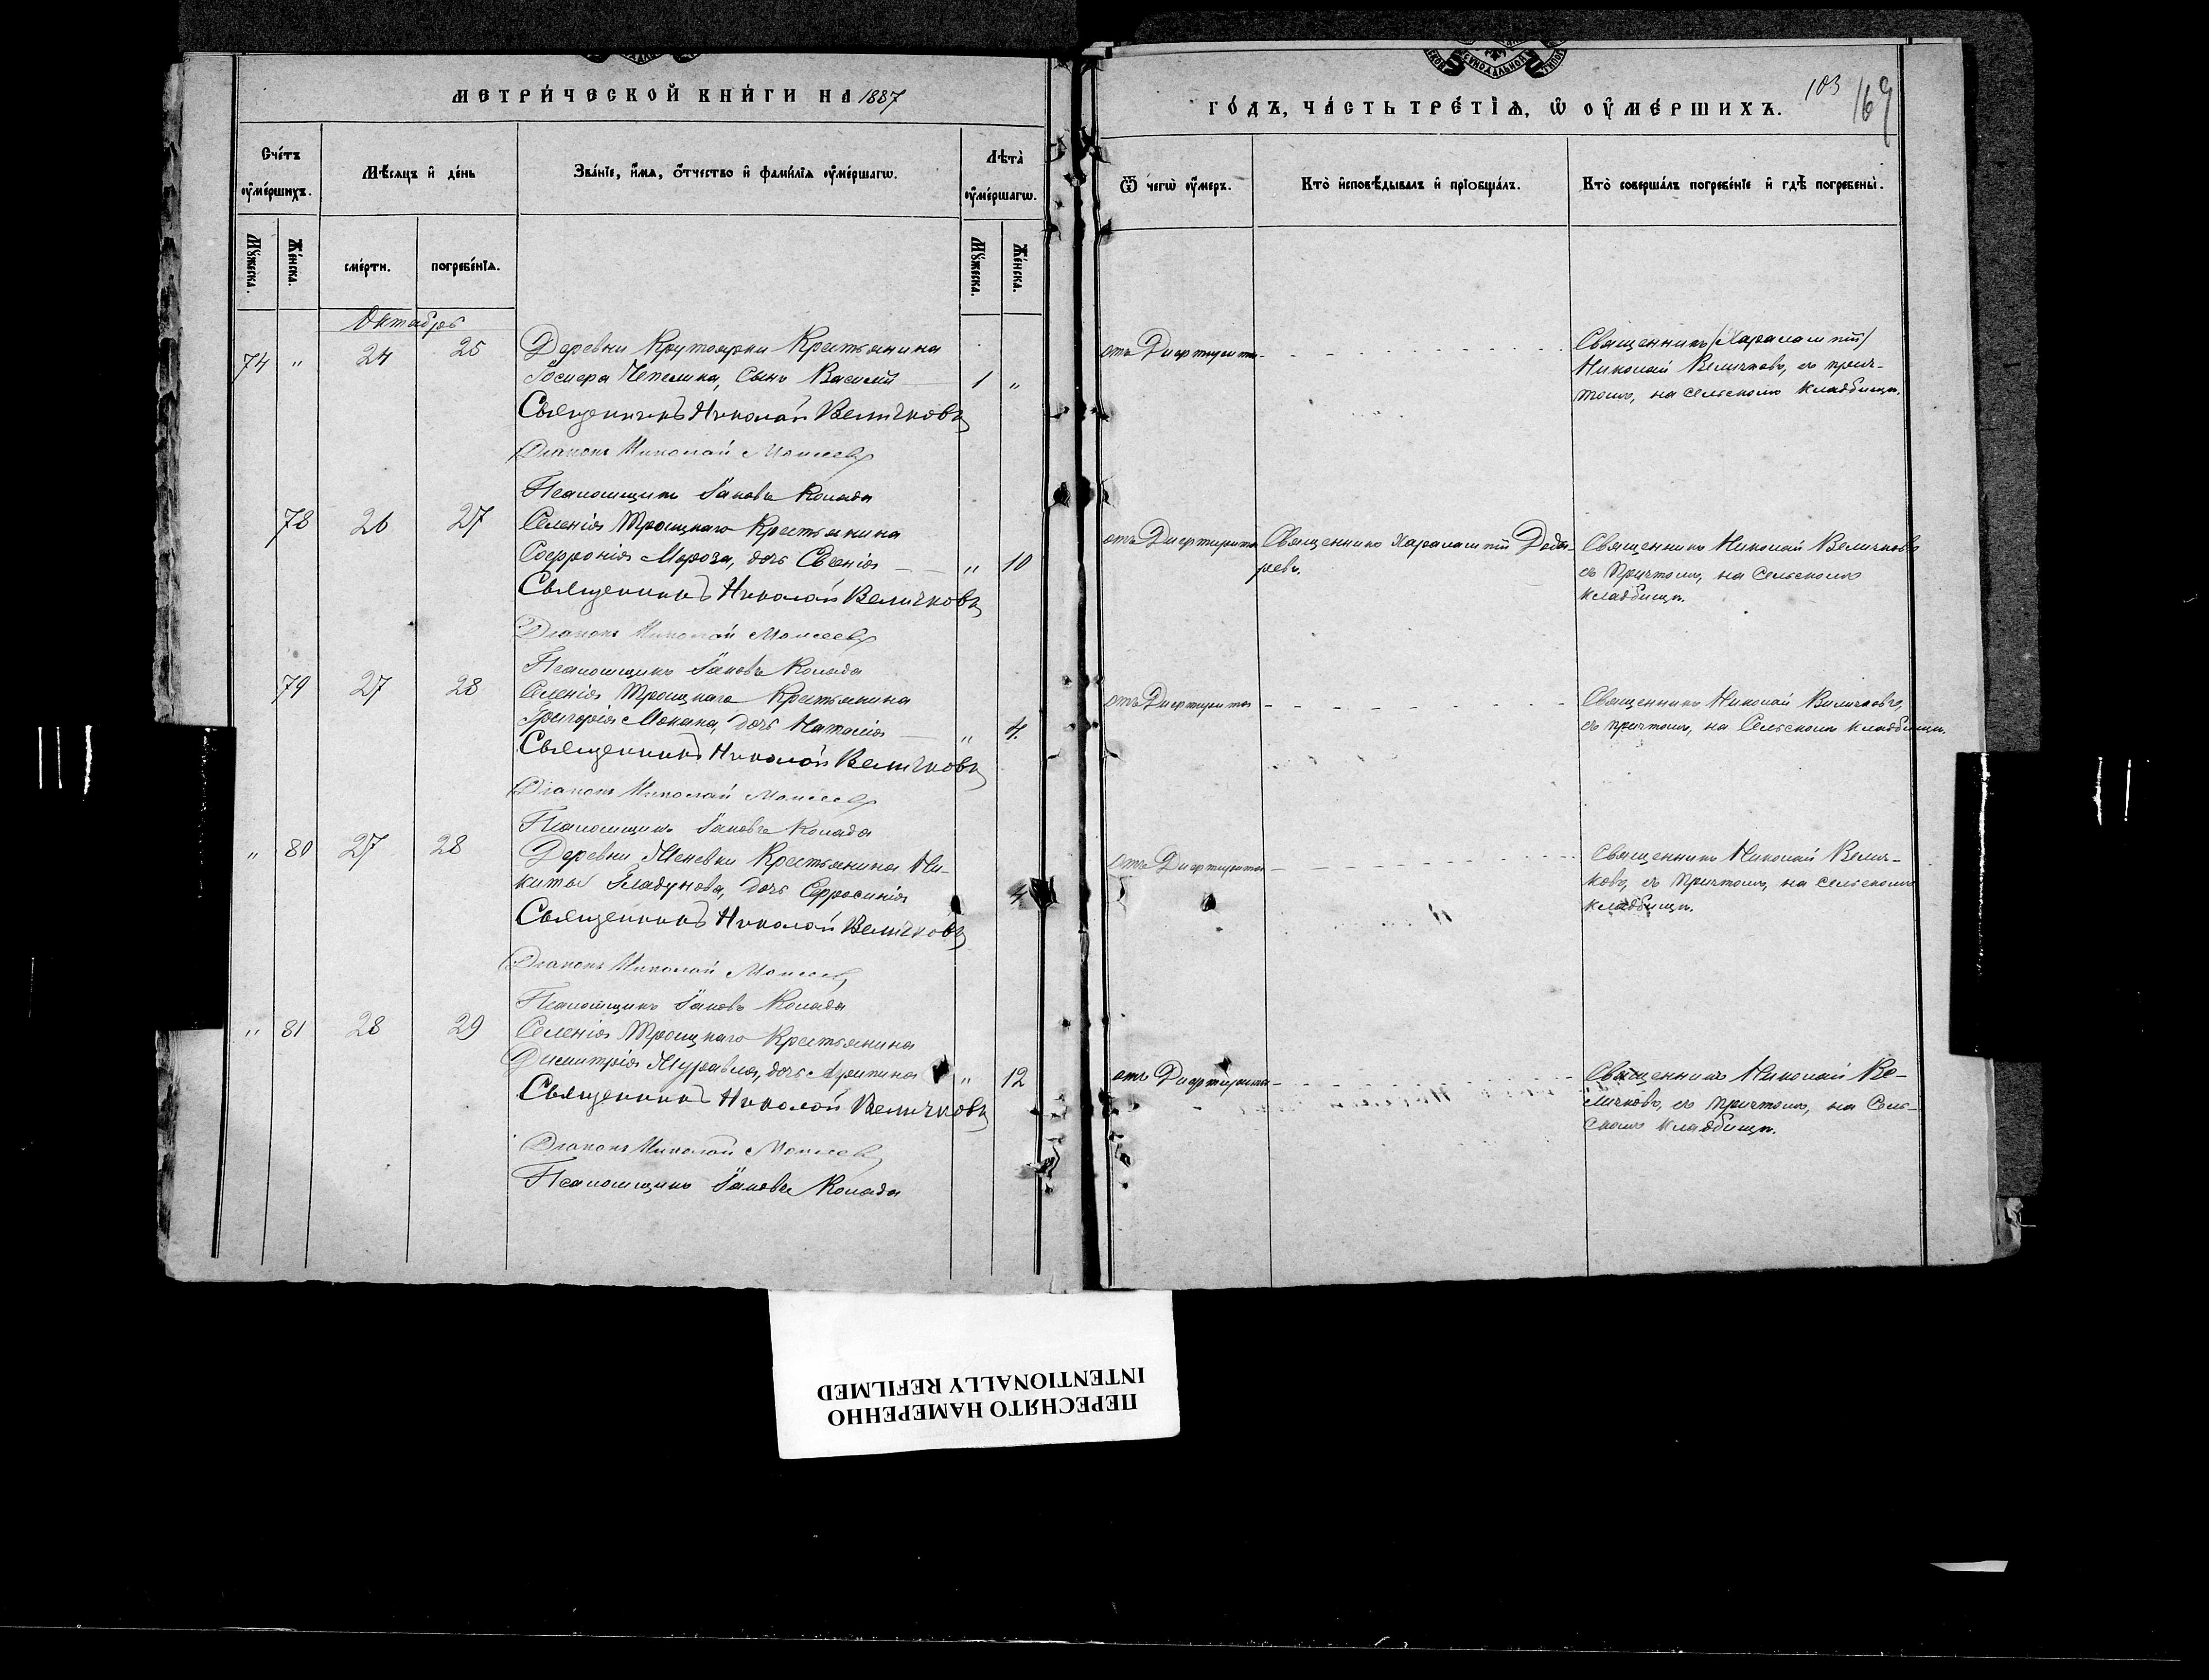 МЕТРИ́ЧЕСКОЙ КНИ́ГИ НА 1887
Сче́тъ ᲂу҆ме́ршихъ.
Мѣ́сяцъ и҆ де́нь
Зва́нїе, и҆́мя, ѻ҆́тчество и҆ фами́лїя ᲂу҆ме́ршагѡ.
Лѣта̀ ᲂу҆ме́ршагѡ.
Мꙋ́жеска.
Же́нска.
сме́рти.
погребе́нїѧ.
Мꙋ́жеска.
Же́нска.
Октябрь
74 " 24 25 Деревни Крутоярки Крестьянина
Чепелика, сынъ Василій 1 "
Священникъ Николай Величковъ
Діаконъ Николай Моисеевъ
Псаломщикъ Іаковъ Колада
78 26 27 Селенія Троицкаго Крестьянина
Софронія Мороза, дочь Евгенія — " 10
Священникъ Николай Величковъ
Діаконъ Николай Моисеевъ
Псаломщикъ Іаковъ Колада
79 27 28 Селенія Троицкаго Крестьянина
Григорія Мокана, дочь Наталія — " 4
Священникъ Николай Величковъ
Діаконъ Николай Моисеевъ
Псаломщикъ Іаковъ Колада
" 80 27 28 Деревни Крестьянина Ни-
киты Гладунова, дочь Ефросинія 4
Священникъ Николай Величковъ
Діаконъ Николай Моисеевъ
Псаломщикъ Іаковъ Колада
" 81 28 29 Селенія Троицкаго Крестьянина
Димитрія Журавля, дочь " 12
Священникъ Николай Величковъ
Діаконъ Николай Моисеевъ
Псаломщикъ Іаковъ Колада
ГО́ДЪ, ЧА́СТЬ ТРЕ́ТЇѦ, Ѡ҆ ОУ҆МЕ́РШИХЪ.
103
169
Ѿ чегѡ̀ ᲂу҆́меръ.
Кто̀ и҆сповѣ́дывалъ и҆ прїобща́лъ.
Кто̀ соверша́лъ погребе́нїе и҆ гдѣ̀ погребены̀.
отъ Дифтерита
Священникъ /Харалампій/
Николай Величковъ, съ прич-
томъ, на сельскомъ кладбищѣ.
отъ Дифтерита Священникъ Харалампій
Священникъ Николай Величковъ
съ Причтомъ, на Сельскомъ
кладбищѣ.
отъ Дифтерита
Священникъ Николай Величковъ,
съ причтомъ, на Сельскомъ кладбищѣ.
отъ Дифтерита
Священникъ Николай Велич-
ковъ, съ Причтомъ, на сельскомъ
кладбищѣ.
отъ Дифтерита
Священникъ Николай Ве-
личковъ, съ причтомъ, на Сель-
скомъ кладбищѣ.
ПЕРЕСНЯТО НАМЕРЕННО
INTENTIONALLY REFILMED